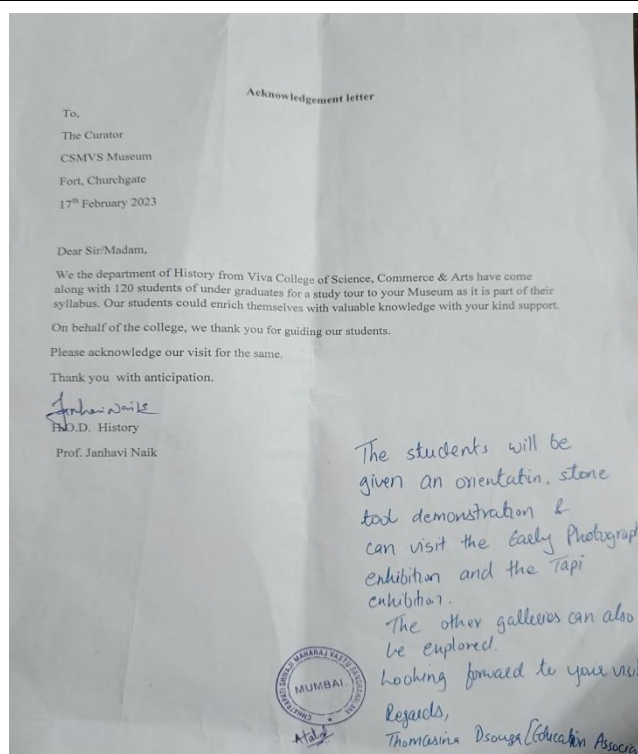 Acknowledgement letter
To,
The Curator
CSMVS Museum
Fort, Churchgate
17th February 2023
Dear Sir/Madam,
We the department of History from Viva College of Science, Commerce & Arts have come
along with 120 students of under graduates for a study tour to your Museum as it is part of their
syllabus. Our students could enrich themselves with valuable knowledge with your kind support.
On behalf of the college, we thank you for guiding our students.
Please acknowledge our visit for the same.
Thank you with anticipation.
Janhavi Naik
H.O.D. History
Prof. Janhavi Naik
The students will be
given an orientatin, stone
tool demonstration &
can visit the Early Photograp
exhibition and the Tapi
exhibition.
The other galleries can also
be explored.
Looking forward to your vis
Regards,
Thomasina Dsouza [Education Associa
CHHATRAPATI SHIVAJI MAHARAJ VASTU SANGRAHALAYA
MUMBAI.